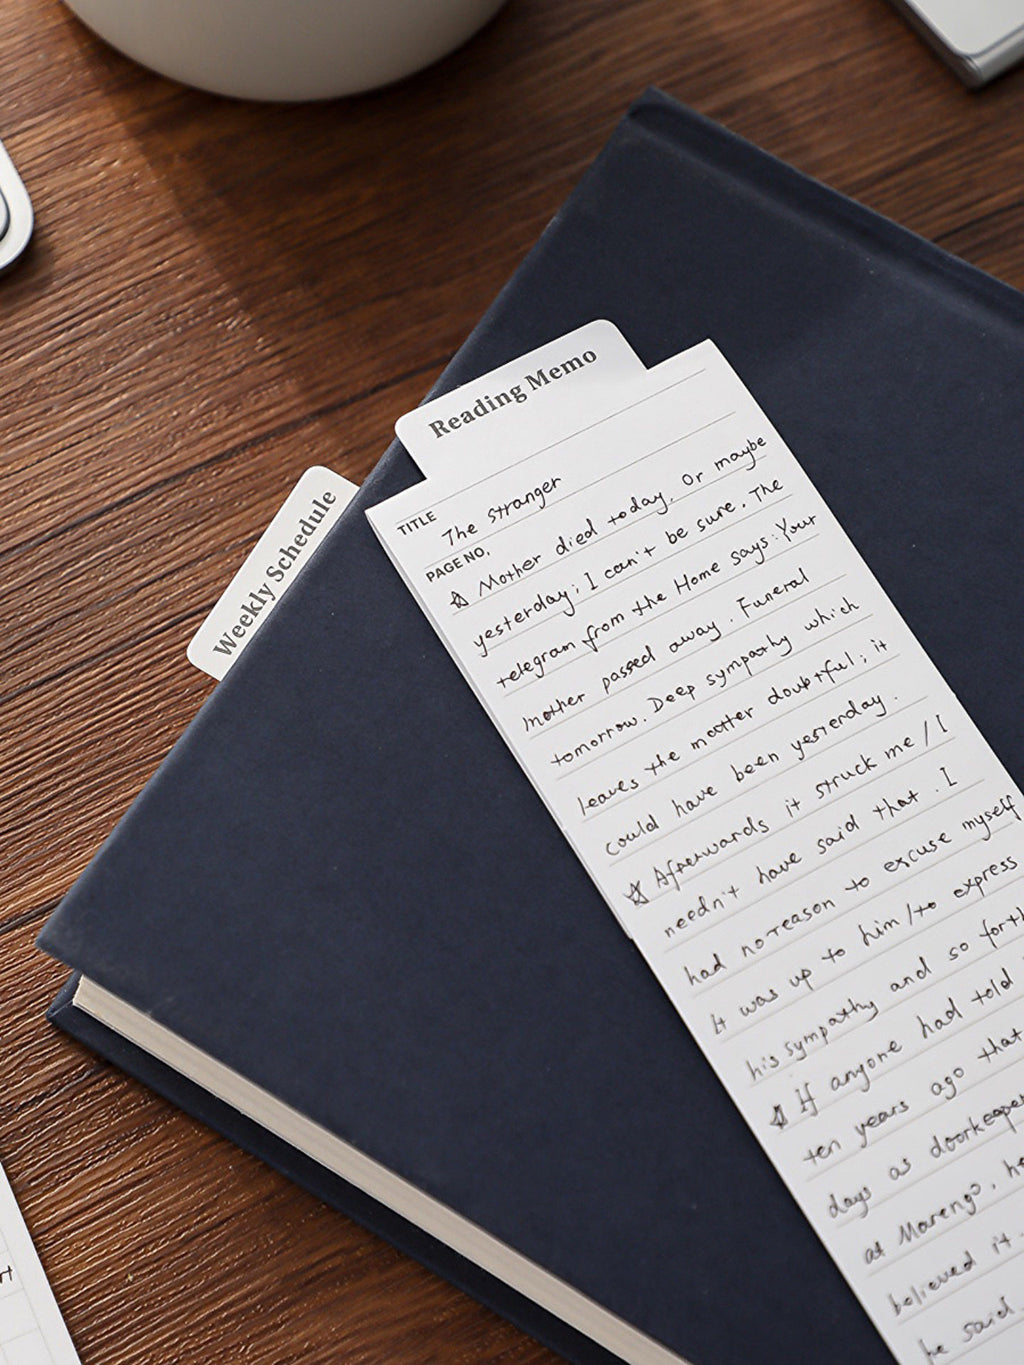 Reading Memo
Weekly Schedule
TITLE
The stranger
PAGE NO.
☆ Mother died today. Or maybe
yesterday; I can't be sure. The
telegram from the Home says: Your
mother passed away. Funeral
tomorrow. Deep sympathy which
leaves the matter doubtful; it
could have been yesterday.
☆ Afterwards it struck me / I
needn't have said that. I
had no reason to excuse myself
It was up to him / to express
his sympathy and so forth
☆ If anyone had told
ten years ago that
days as doorkeeper
at Marengo, he
believed it.
he said